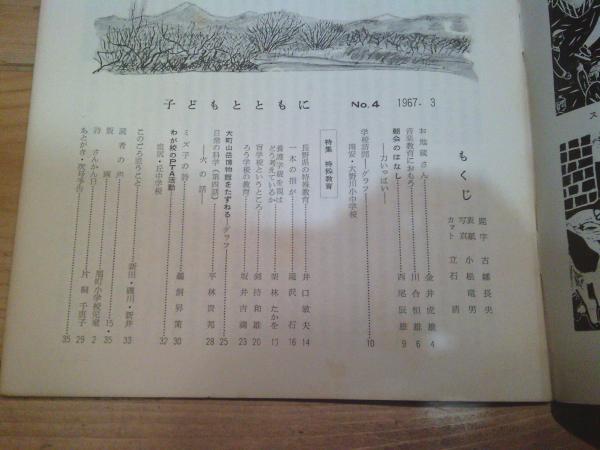 子どもとともに
No.4 1967. 3
もくじ
題字 古雄長央
表紙 小松竜男
写真
カマト 立石清
お地蔵さん 金井虎雄 4
音楽教育におもう 川合恒雄 6
朝会のはなし 西尾辰雄 9
―力いっぱい―
学校訪問―グラフ― 10
南安・大野川小中学校
特集 特殊教育
長野県の特殊教育 井口敏夫 14
一本の指が 滝沢石 16
養護学級を親は
どう考えているか 栗林たかを 17
盲学校というところ 剣持和雄 20
ろう学校の教育 坂井吉満 23
大町山岳博物館をたずねる―グラフ― 25
日常の科学(第四話) 平林貴邦 28
―火の話―
ミズ子の詩 鵜飼昇策 30
わが校のPTA活動 32
塩尻・丘中学校
このごろ思うこと 新田・磯川・新井 33
読者の声
版画 15・35
詩 さんかん日 旭町小学校児童 2
片桐千恵子 29
あとがき 35
ス